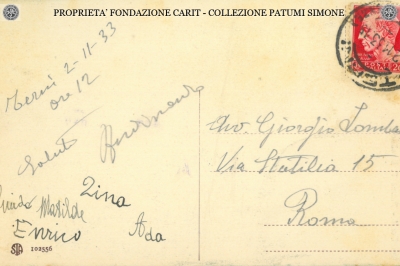 PROPRIETA' FONDAZIONE CARIT - COLLEZIONE PATUMI SIMONE
Terni 2-11-33
ore 12
Saluti
Zina
Guido Matilde
Enrico
Ada
STA 102556
Avv. Giorgio Lomba
Via Statilia 15
Roma